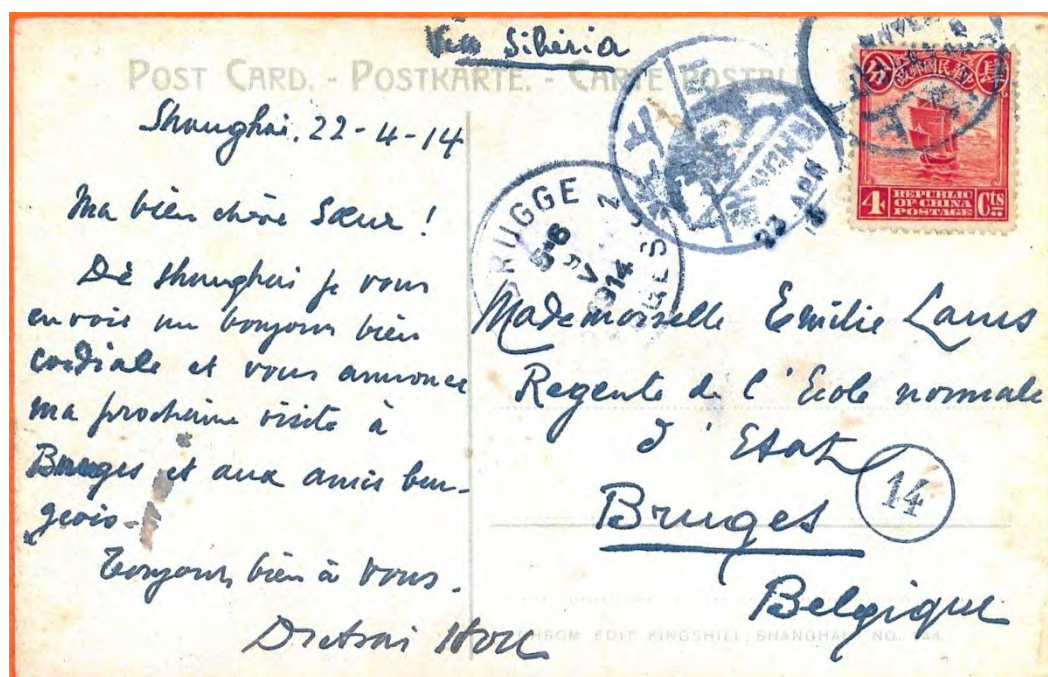 Via Siberia
POST CARD. - POSTKARTE. - CARTE POSTALE
Shanghai. 22-4-14
Ma bien chère Sœur !
De Shanghai je vous
envoie un bonjour bien
cordiale et vous annonce
ma prochaine visite à
Bruges et aux amis bru-
geois.
Toujours bien à vous.
中華民國郵政
4 REPUBLIC OF CHINA POSTAGE Cts
SHANGHAI
22 APR
BRUGGE 2 BRUGES
5-6
V
1914
Mademoiselle Emilie Laus
Regente de l'Ecole normale
d'Etat
14
Bruges
Belgique
CHROM EDIT KINGSHILL, SHANGHAI. NO.